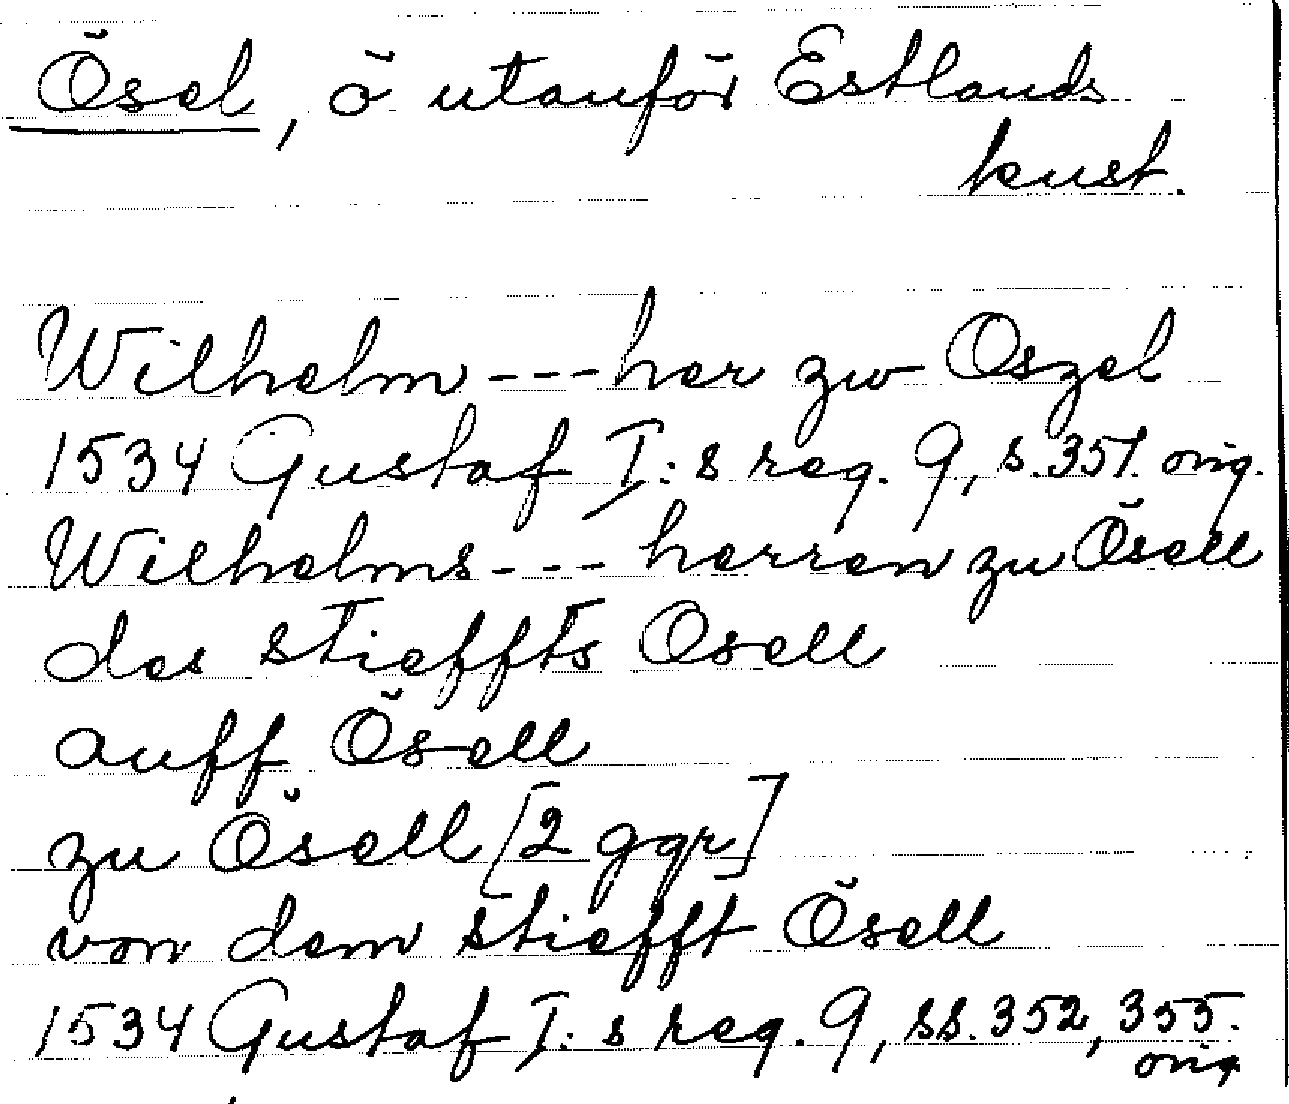 Ösel, ö utanför Estlands
kust.
Wilhelm --- her zw Oszel
1534 Gustaf I:s reg. 9, s. 351. orig.
Wilhelms --- herren zu Ösell
des stieffts Osell
auff Ösell
zu Ösell [2 ggr]
von dem stiefft Ösell
1534 Gustaf I:s reg. 9, ss. 352, 355.
orig